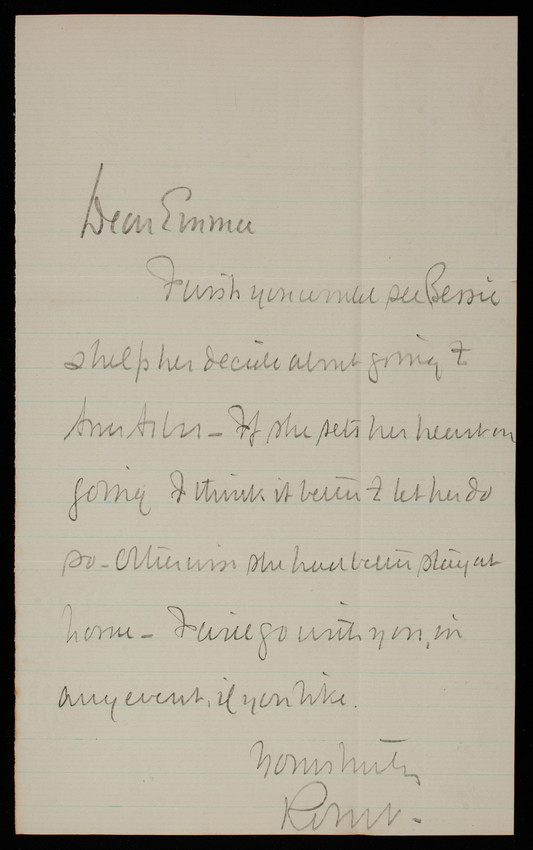 Dear Emma
I wish you would see Bessie
& help her decide about going to
Ann Arbor - If she sets her heart on
going I think it better to let her do
so - Otherwise she had better stay at
home - I will go with you, in
any event, if you like.
Yours truly